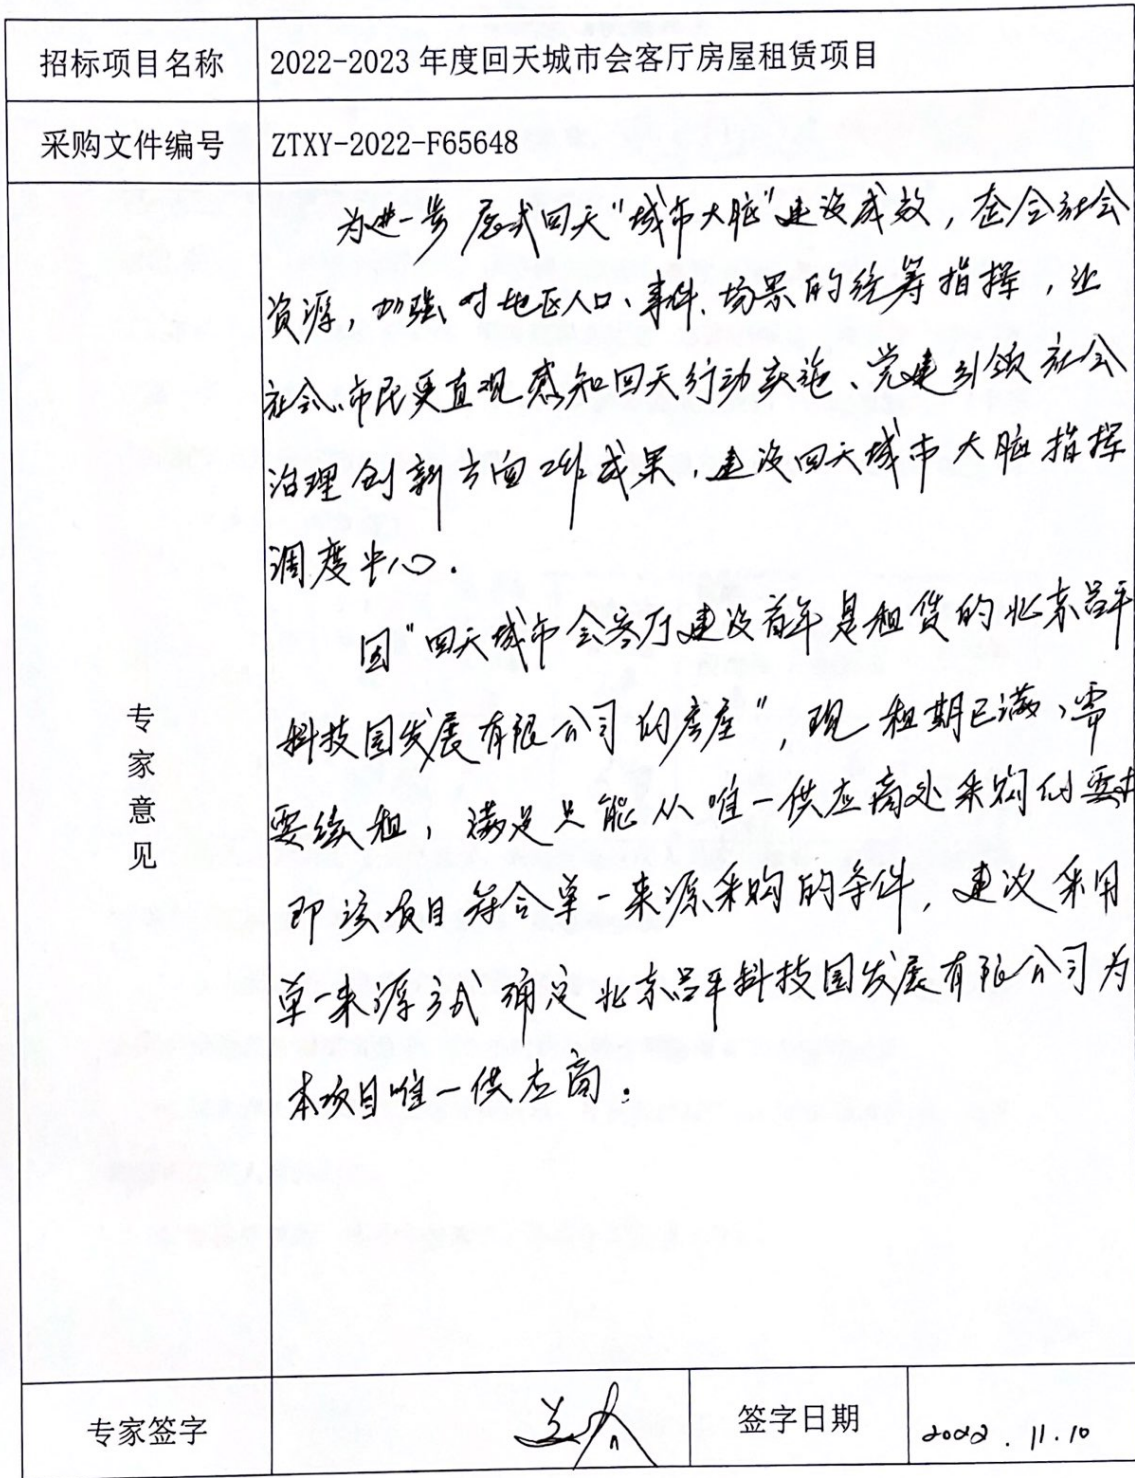 招标项目名称 2022-2023 年度回天城市会客厅房屋租赁项目
采购文件编号 ZTXY-2022-F65648
专家意见
为进一步展式回天"城市大脑"建设成效，整合社会
资源，加强对地区人口、事件、场景的统筹指挥，让
社会、市民更直观感知回天行动实施、党建引领社会
治理创新方面工作成果，建设回天城市大脑指挥
调度中心.
因"回天城市会客厅建设首年是租赁的北京昌平
科技园发展有限公司的房屋"，现租期已满，需
要续租，满足只能从唯一供应商处采购的要求
即该项目符合单一来源采购的条件，建议采用
单一来源方式确定北京昌平科技园发展有限公司为
本项目唯一供应商.
专家签字 签字日期 2022.11.10